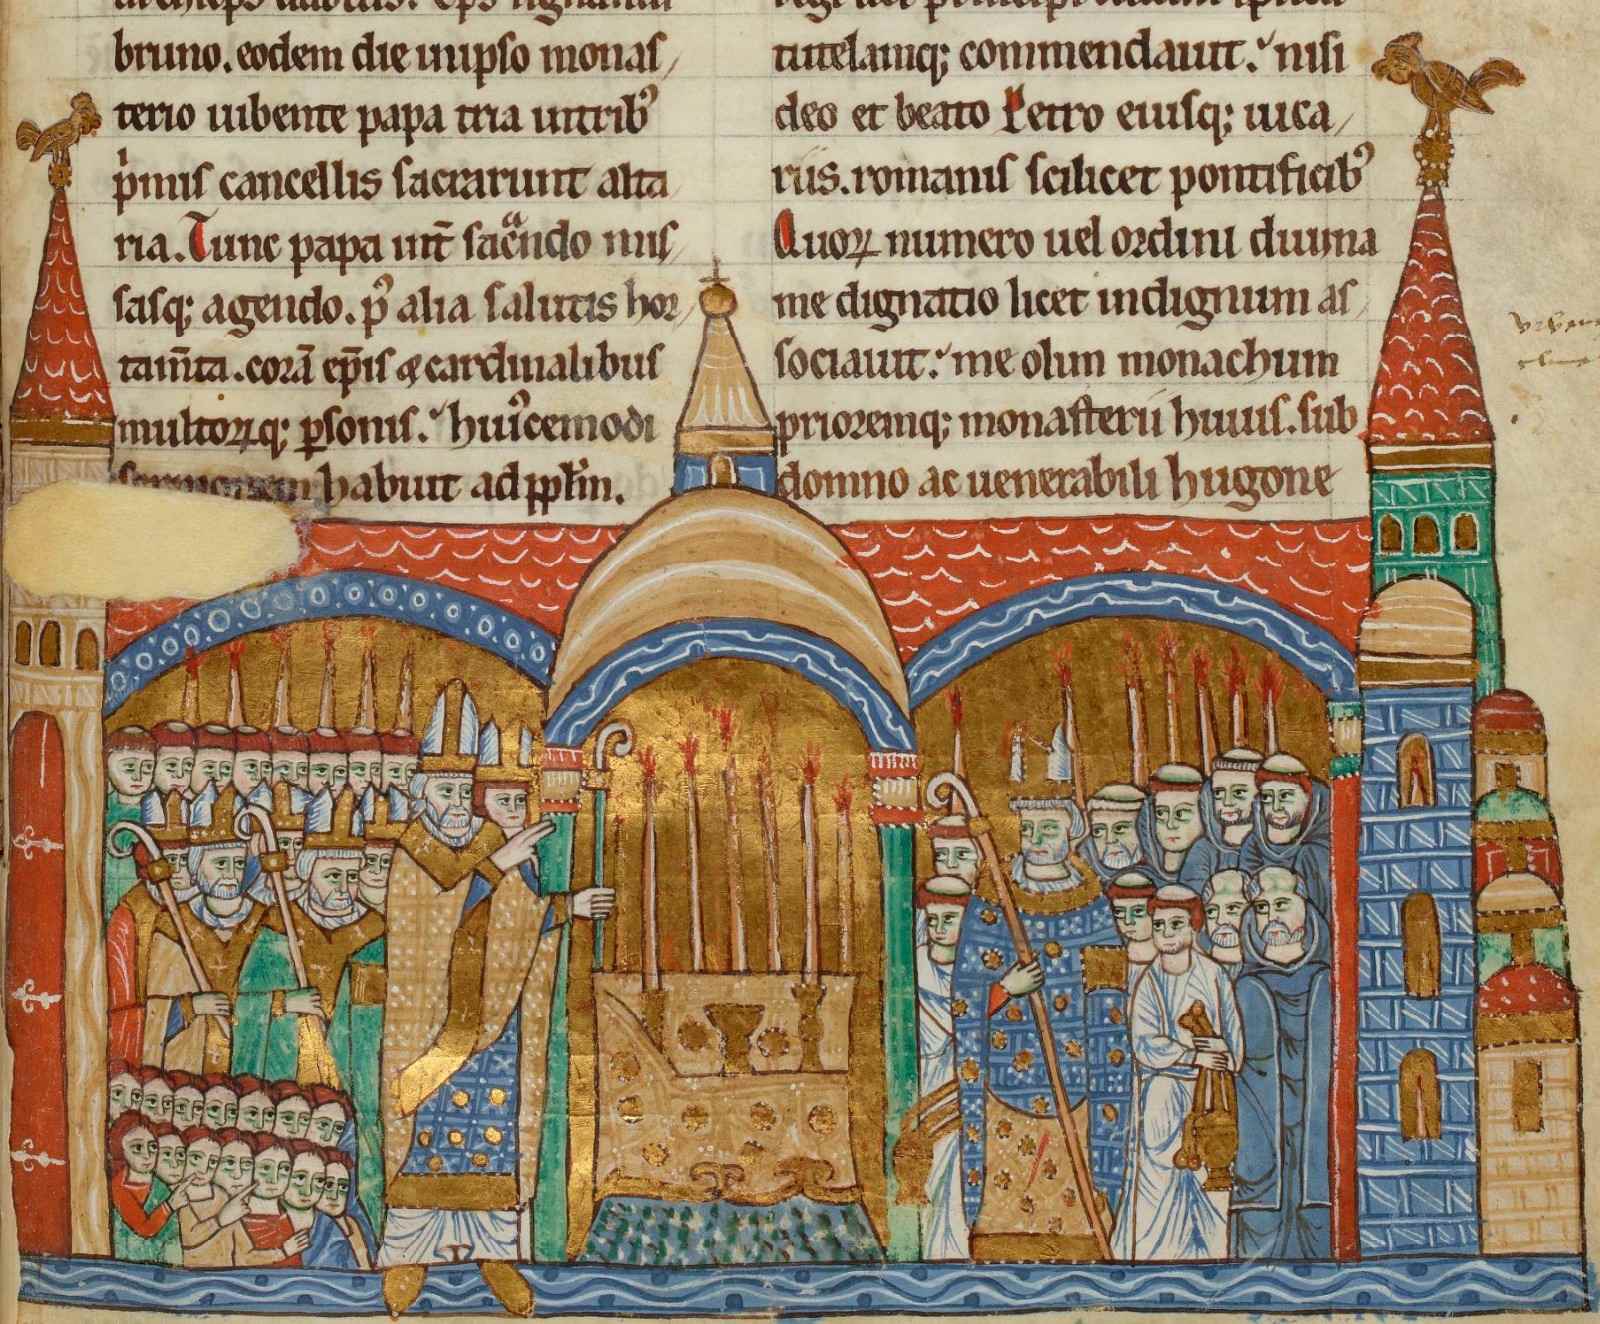 bruno. eodem die in ipso monas/
terio iubente papa tria in trib᷒
p̍mis cancellis sacrarunt alta
ria. Tunc papa int̄ sac̃ndo mis/
sasq; agendo. p᷒ alia salutis hor/
tam̄ta. corā ep̄is ⁊ cardinalibus
multoꝝq; ꝑsonis. hui᷒cemodi
sermonem habuit ad pp̄lm.
tutelamq; commendauit. nisi
deo et beato Petro eiusq; uica/
riis. romanis scilicet pontificib᷒
Quoꝝ numero uel ordini diuina
me dignatio licet indignum as/
sociauit. me olim monachum
prioremq; monasterii huius. sub
domno ac uenerabili hugone